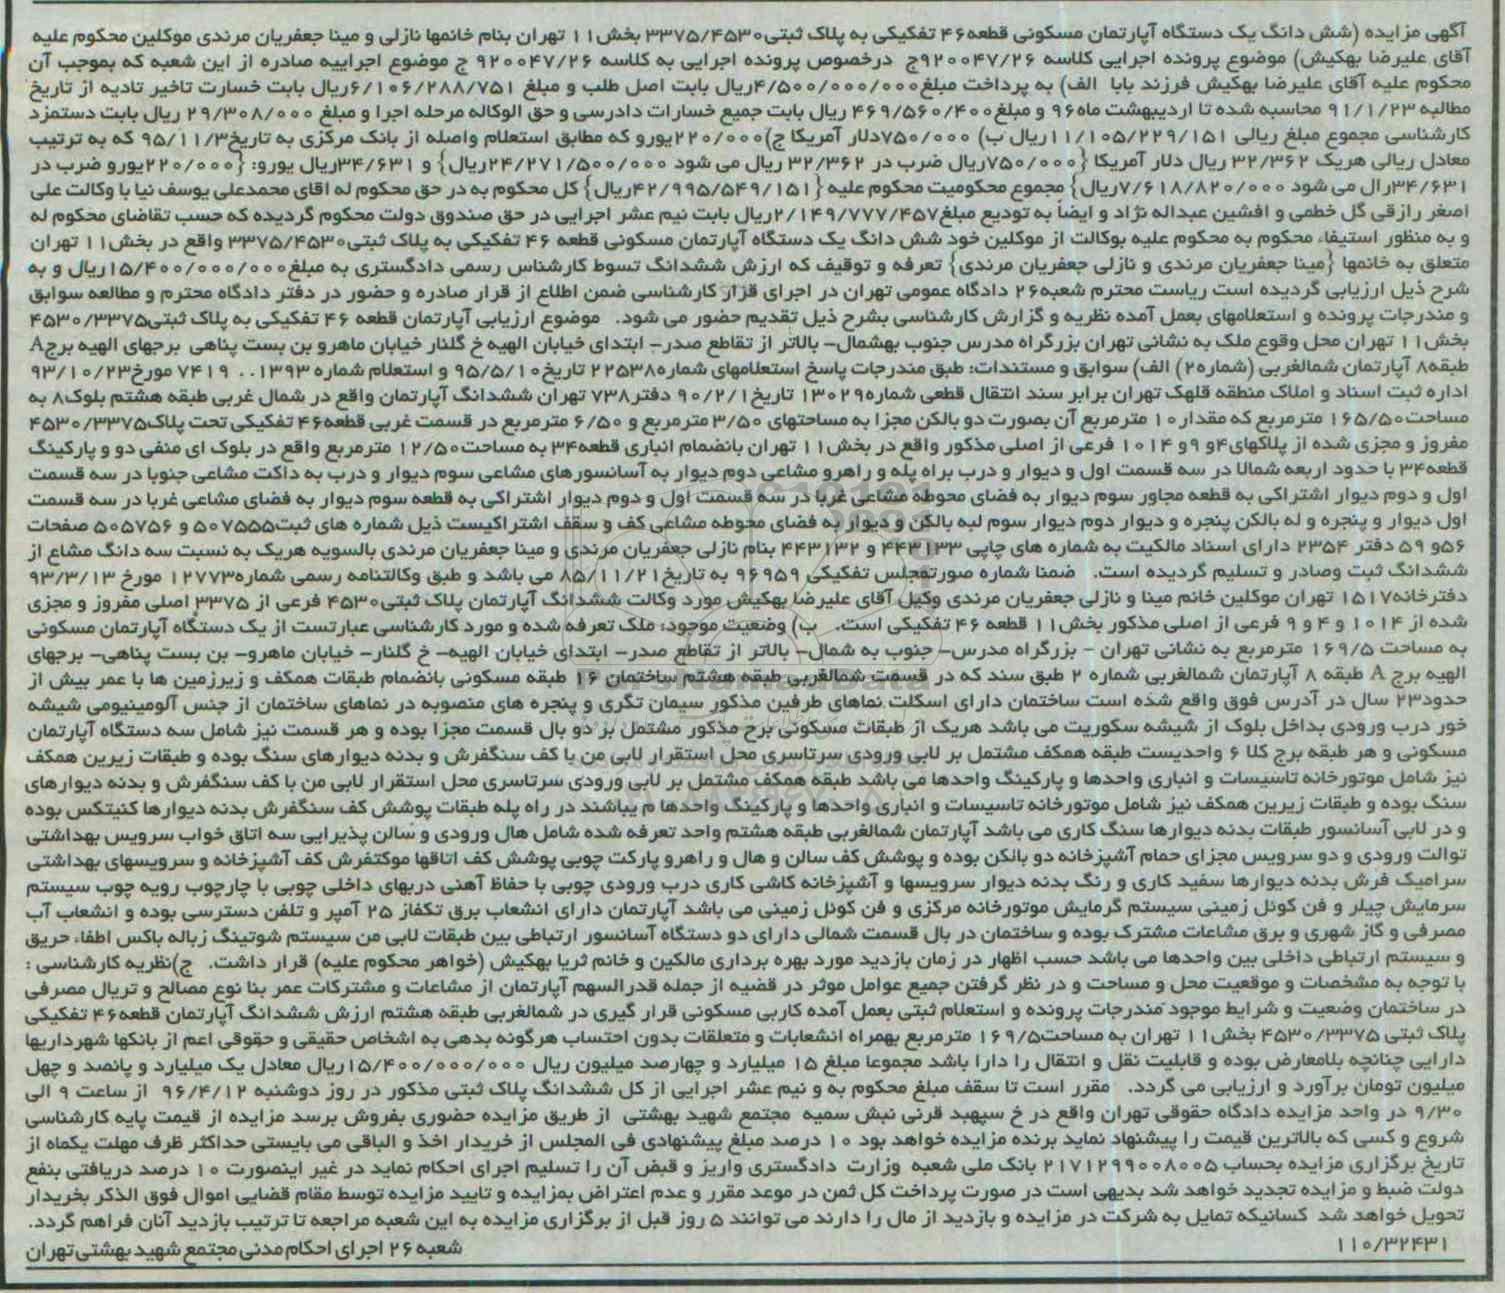 آگهی مزایده (شش دانگ یک دستگاه آپارتمان مسکونی قطعه۴۶ تفکیکی به پلاک ثبتی۳۳۷۵/۴۵۳۰ بخش۱۱ تهران بنام خانمها نازلی و مینا جعفریان مرندی موکلین محکوم علیه
آقای علیرضا بهکیش) موضوع پرونده اجرایی کلاسه ۹۲۰۰۴۷/۲۶ج درخصوص پرونده اجرایی به کلاسه ۹۲۰۰۴۷/۲۶ ج موضوع اجراییه صادره از این شعبه که بموجب آن
محکوم علیه آقای علیرضا بهکیش فرزند بابا الف) به پرداخت مبلغ۴/۵۰۰/۰۰۰/۰۰۰ریال بابت اصل طلب و مبلغ ۶/۱۰۶/۲۸۸/۷۵۱ریال بابت خسارت تاخیر تادیه از تاریخ
مطالبه ۹۱/۱/۲۳ محاسبه شده تا اردیبهشت ماه۹۶ و مبلغ۴۶۹/۵۶۰/۴۰۰ ریال بابت جمیع خسارات دادرسی و حق الوکاله مرحله اجرا و مبلغ ۲۹/۳۰۸/۰۰۰ ریال بابت دستمزد
کارشناسی مجموع مبلغ ریالی ۱۱/۱۰۵/۲۲۹/۱۵۱ریال ب) ۷۵۰/۰۰۰دلار آمریکا ج)۲۲۰/۰۰۰یورو که مطابق استعلام واصله از بانک مرکزی به تاریخ۹۵/۱۱/۳ که به ترتیب
معادل ریالی هریک ۳۲/۳۶۲ ریال دلار آمریکا {۷۵۰/۰۰۰ریال ضرب در ۳۲/۳۶۲ ریال می شود ۲۴/۲۷۱/۵۰۰/۰۰۰ریال} و ۳۴/۶۳۱ریال یورو: {۲۲۰/۰۰۰یورو ضرب در
۳۴/۶۳۱رال می شود ۷/۶۱۸/۸۲۰/۰۰۰ریال} مجموع محکومیت محکوم علیه {۴۲/۹۹۵/۵۴۹/۱۵۱ریال} کل محکوم به در حق محکوم له اقای محمدعلی یوسف نیا با وکالت علی
اصغر رازقی گل خطمی و افشین عبداله نژاد و ایضاً به تودیع مبلغ۲/۱۴۹/۷۷۷/۴۵۷ریال بابت نیم عشر اجرایی در حق صندوق دولت محکوم گردیده که حسب تقاضای محکوم له
و به منظور استیفاء محکوم به محکوم علیه بوکالت از موکلین خود شش دانگ یک دستگاه آپارتمان مسکونی قطعه ۴۶ تفکیکی به پلاک ثبتی۳۳۷۵/۴۵۳۰ واقع در بخش۱۱ تهران
متعلق به خانمها {مینا جعفریان مرندی و نازلی جعفریان مرندی} تعرفه و توقیف که ارزش ششدانگ تسوط کارشناس رسمی دادگستری به مبلغ۱۵/۴۰۰/۰۰۰/۰۰۰ریال و به
شرح ذیل ارزیابی گردیده است ریاست محترم شعبه۲۶ دادگاه عمومی تهران در اجرای قرار کارشناسی ضمن اطلاع از قرار صادره و حضور در دفتر دادگاه محترم و مطالعه سوابق
و مندرجات پرونده و استعلامهای بعمل آمده نظریه و گزارش کارشناسی بشرح ذیل تقدیم حضور می شود. موضوع ارزیابی آپارتمان قطعه ۴۶ تفکیکی به پلاک ثبتی۴۵۳۰/۳۳۷۵
بخش۱۱ تهران محل وقوع ملک به نشانی تهران بزرگراه مدرس جنوب بهشمال- بالاتر از تقاطع صدر- ابتدای خیابان الهیه خ گلنار خیابان ماهرو بن بست پناهی برجهای الهیه برجA
طبقه۸ آپارتمان شمالغربی (شماره۲) الف) سوابق و مستندات: طبق مندرجات پاسخ استعلامهای شماره۲۲۵۳۸ تاریخ۹۵/۵/۱۰ و استعلام شماره ۱۳۹۳.. ۷۴۱۹ مورخ۹۳/۱۰/۲۳
اداره ثبت اسناد و املاک منطقه قلهک تهران برابر سند انتقال قطعی شماره۱۳۰۲۹ تاریخ۹۰/۲/۱ دفتر۷۳۸ تهران ششدانگ آپارتمان واقع در شمال غربی طبقه هشتم بلوک۸ به
مساحت۱۶۵/۵۰ مترمربع که مقدار۱۰ مترمربع آن بصورت دو بالکن مجزا به مساحتهای ۳/۵۰ مترمربع و ۶/۵۰ مترمربع در قسمت غربی قطعه۴۶ تفکیکی تحت پلاک۴۵۳۰/۳۳۷۵
مفروز و مجزی شده از پلاکهای۴و ۹و ۱۰۱۴ فرعی از اصلی مذکور واقع در بخش۱۱ تهران بانضمام انباری قطعه۳۴ به مساحت۱۲/۵۰ مترمربع واقع در بلوک ای منفی دو و پارکینگ
قطعه۳۴ با حدود اربعه شمالا در سه قسمت اول و دیوار و درب براه پله و راهرو مشاعی دوم دیوار به آسانسورهای مشاعی سوم دیوار و درب به داکت مشاعی جنوبا در سه قسمت
اول و دوم دیوار اشتراکی به قطعه مجاور سوم دیوار به فضای محوطه مشاعی غربا در سه قسمت اول و دوم دیوار اشتراکی به قطعه سوم دیوار به فضای مشاعی غربا در سه قسمت
اول دیوار و پنجره و له بالکن پنجره و دیوار دوم دیوار سوم لبه بالکن و دیوار به فضای محوطه مشاعی کف و سقف اشتراکیست ذیل شماره های ثبت۵۰۷۵۵۵ و ۵۰۵۷۵۶ صفحات
۵۶و ۵۹ دفتر ۲۳۵۴ دارای اسناد مالکیت به شماره های چاپی ۴۴۳۱۳۳ و ۴۴۳۱۳۲ بنام نازلی جعفریان مرندی و مینا جعفریان مرندی بالسویه هریک به نسبت سه دانگ مشاع از
ششدانگ ثبت وصادر و تسلیم گردیده است. ضمنا شماره صورتمجلس تفکیکی ۹۶۹۵۹ به تاریخ۸۵/۱۱/۲۱ می باشد و طبق وکالتنامه رسمی شماره۱۲۷۷۳ مورخ ۹۳/۳/۱۳
دفترخانه۱۵۱۷ تهران موکلین خانم مینا و نازلی جعفریان مرندی وکیل آقای علیرضا بهکیش مورد وکالت ششدانگ آپارتمان پلاک ثبتی۴۵۳۰ فرعی از ۳۳۷۵ اصلی مفروز و مجزی
شده از ۱۰۱۴ و ۴ و ۹ فرعی از اصلی مذکور بخش۱۱ قطعه ۴۶ تفکیکی است. ب) وضعیت موجود: ملک تعرفه شده و مورد کارشناسی عبارتست از یک دستگاه آپارتمان مسکونی
به مساحت ۱۶۹/۵ مترمربع به نشانی تهران - بزرگراه مدرس- جنوب به شمال- بالاتر از تقاطع صدر- ابتدای خیابان الهیه- خ گلنار- خیابان ماهرو- بن بست پناهی- برجهای
الهیه برج A طبقه ۸ آپارتمان شمالغربی شماره ۲ طبق سند که در قسمت شمالغربی طبقه هشتم ساختمان ۱۶ طبقه مسکونی بانضمام طبقات همکف و زیرزمین ها با عمر بیش از
حدود۲۳ سال در آدرس فوق واقع شده است ساختمان دارای اسکلت نماهای طرفین مذکور سیمان تگری و پنجره های منصوبه در نماهای ساختمان از جنس آلومینیومی شیشه
خور درب ورودی بداخل بلوک از شیشه سکوریت می باشد هریک از طبقات مسکونی برج مذکور مشتمل بر دو بال قسمت مجزا بوده و هر قسمت نیز شامل سه دستگاه آپارتمان
مسکونی و هر طبقه برج کلا ۶ واحدیست طبقه همکف مشتمل بر لابی ورودی سرتاسری محل استقرار لابی من با کف سنگفرش و بدنه دیوارهای سنگ بوده و طبقات زیرین همکف
نیز شامل موتورخانه تاسیسات و انباری واحدها و پارکینگ واحدها می باشد طبقه همکف مشتمل بر لابی ورودی سرتاسری محل استقرار لابی من با کف سنگفرش و بدنه دیوارهای
سنگ بوده و طبقات زیرین همکف نیز شامل موتورخانه تاسیسات و انباری واحدها و پارکینگ واحدها م یباشند در راه پله طبقات پوشش کف سنگفرش بدنه دیوارها کنیتکس بوده
و در لابی آسانسور طبقات بدنه دیوارها سنگ کاری می باشد آپارتمان شمالغربی طبقه هشتم واحد تعرفه شده شامل هال ورودی و سالن پذیرایی سه اتاق خواب سرویس بهداشتی
توالت ورودی و دو سرویس مجزای حمام آشپزخانه دو بالکن بوده و پوشش کف سالن و هال و راهرو پارکت چوبی پوشش کف اتاقها موکتفرش کف آشپزخانه و سرویسهای بهداشتی
سرامیک فرش بدنه دیوارها سفید کاری و رنگ بدنه دیوار سرویسها و آشپزخانه کاشی کاری درب ورودی چوبی با حفاظ آهنی دربهای داخلی چوبی با چارچوب رویه چوب سیستم
سرمایش چیلر و فن کوئل زمینی سیستم گرمایش موتورخانه مرکزی و فن کوئل زمینی می باشد آپارتمان دارای انشعاب برق تکفاز ۲۵ آمپر و تلفن دسترسی بوده و انشعاب آب
مصرفی و گاز شهری و برق مشاعات مشترک بوده و ساختمان در بال قسمت شمالی دارای دو دستگاه آسانسور ارتباطی بین طبقات لابی من سیستم شوتینگ زباله باکس اطفاء حریق
و سیستم ارتباطی داخلی بین واحدها می باشد حسب اظهار در زمان بازدید مورد بهره برداری مالکین و خانم ثریا بهکیش (خواهر محکوم علیه) قرار داشت. ج)نظریه کارشناسی :
با توجه به مشخصات و موقعیت محل و مساحت و در نظر گرفتن جمیع عوامل موثر در قضیه از جمله قدرالسهم آپارتمان از مشاعات و مشترکات عمر بنا نوع مصالح و تریال مصرفی
در ساختمان وضعیت و شرایط موجود مندرجات پرونده و استعلام ثبتی بعمل آمده کاربی مسکونی قرار گیری در شمالغربی طبقه هشتم ارزش ششدانگ آپارتمان قطعه۴۶ تفکیکی
پلاک ثبتی ۴۵۳۰/۳۳۷۵ بخش۱۱ تهران به مساحت۱۶۹/۵ مترمربع بهمراه انشعابات و متعلقات بدون احتساب هرگونه بدهی به اشخاص حقیقی و حقوقی اعم از بانکها شهرداریها
دارایی چنانچه بلامعارض بوده و قابلیت نقل و انتقال را دارا باشد مجموعا مبلغ ۱۵ میلیارد و چهارصد میلیون ریال ۱۵/۴۰۰/۰۰۰/۰۰۰ریال معادل یک میلیارد و پانصد و چهل
میلیون تومان برآورد و ارزیابی می گردد. مقرر است تا سقف مبلغ محکوم به و نیم عشر اجرایی از کل ششدانگ پلاک ثبتی مذکور در روز دوشنبه ۹۶/۴/۱۲ از ساعت ۹ الی
۹/۳۰ در واحد مزایده دادگاه حقوقی تهران واقع در خ سپهبد قرنی نبش سمیه مجتمع شهید بهشتی از طریق مزایده حضوری بفروش برسد مزایده از قیمت پایه کارشناسی
شروع و کسی که بالاترین قیمت را پیشنهاد نماید برنده مزایده خواهد بود ۱۰ درصد مبلغ پیشنهادی فی المجلس از خریدار اخذ و الباقی می بایستی حداکثر ظرف مهلت یکماه از
تاریخ برگزاری مزایده بحساب ۲۱۷۱۲۹۹۰۰۸۰۰۵ بانک ملی شعبه وزارت دادگستری واریز و قبض آن را تسلیم اجرای احکام نماید در غیر اینصورت ۱۰ درصد دریافتی بنفع
دولت ضبط و مزایده تجدید خواهد شد بدیهی است در صورت پرداخت کل ثمن در موعد مقرر و عدم اعتراض بمزایده و تایید مزایده توسط مقام قضایی اموال فوق الذکر بخریدار
تحویل خواهد شد کسانیکه تمایل به شرکت در مزایده و بازدید از مال را دارند می توانند ۵ روز قبل از برگزاری مزایده به این شعبه مراجعه تا ترتیب بازدید آنان فراهم گردد.
۱۱۰/۳۲۴۳۱ شعبه ۲۶ اجرای احکام مدنی مجتمع شهید بهشتی تهران